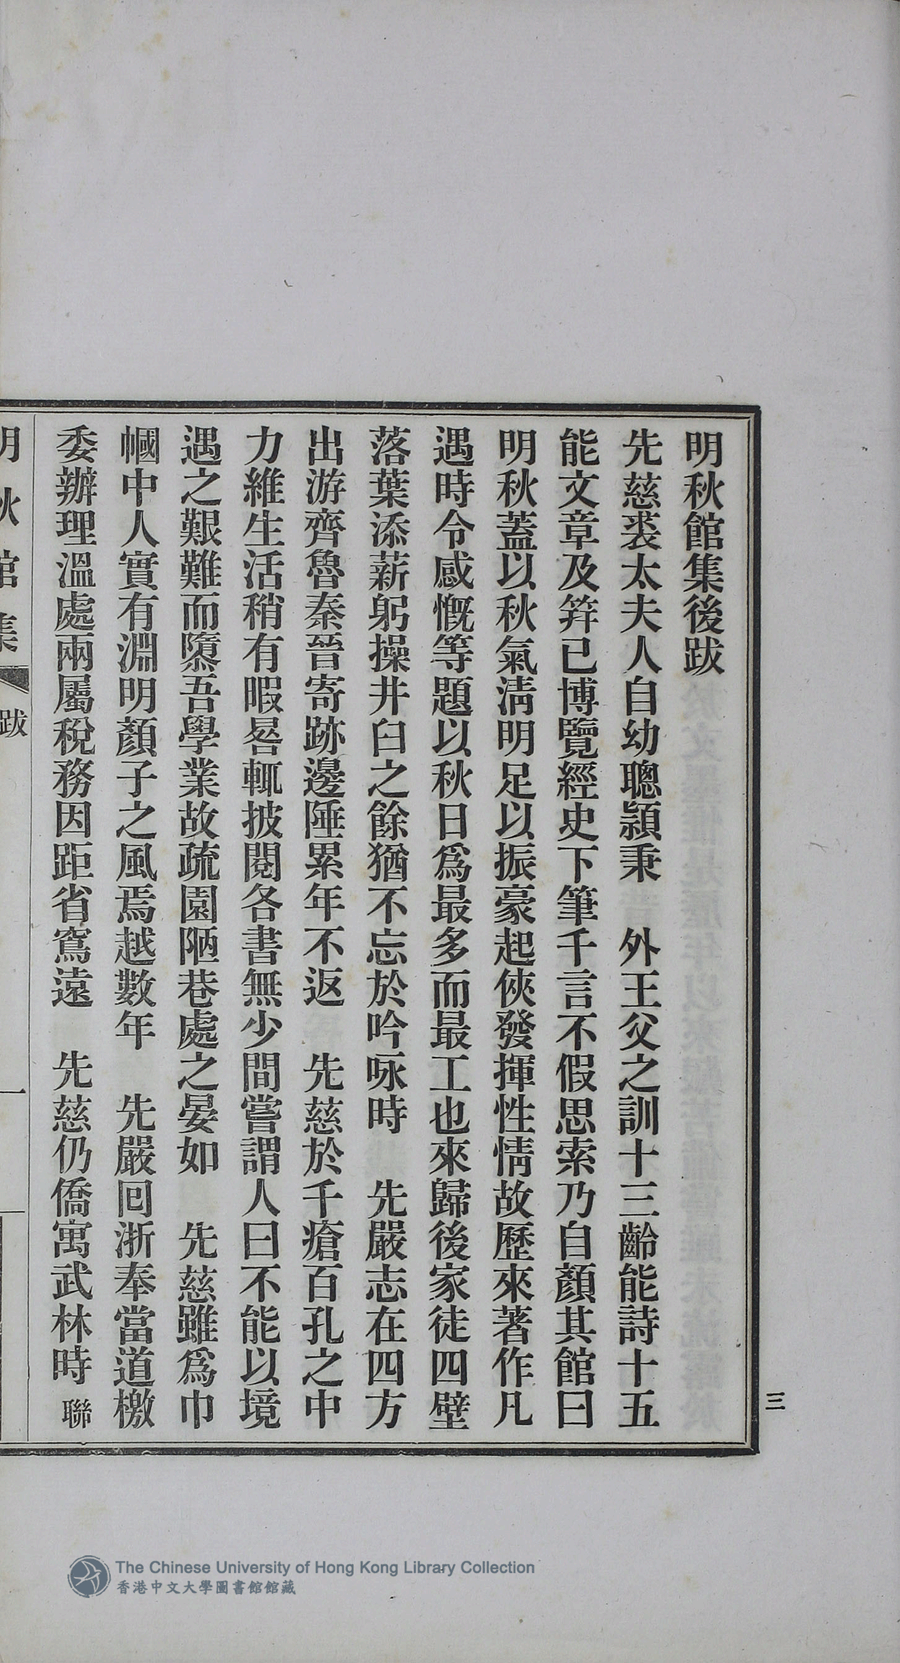 明秋館集後跋
先慈裘太夫人自幼聰潁秉　外王父之訓十三齡能詩十五
能文章及筓已博覽經史下筆千言不假思索乃自顏其館曰
明秋蓋以秋氣淸明足以振豪起俠發揮性情故歷來著作凡
遇時令感慨等題以秋日爲最多而最工也來歸後家徒四壁
落葉添薪躬操井臼之餘猶不忘於吟咏時　先嚴志在四方
出游齊魯秦晉寄跡邊陲累年不返　先慈於千瘡百孔之中
力維生活稍有暇晷輒披閱各書無少間嘗謂人曰不能以境
遇之艱難而隳吾學業故疏園陋巷處之晏如　先慈雖爲巾
幗中人實有淵明顏子之風焉越數年　先嚴囘浙奉當道檄
委辦理溫處兩屬稅務因距省窵遠　先慈仍僑寓武林時聯
明秋館集
跋
一
三
The Chinese University of Hong Kong Library Collection
香港中文大學圖書館館藏